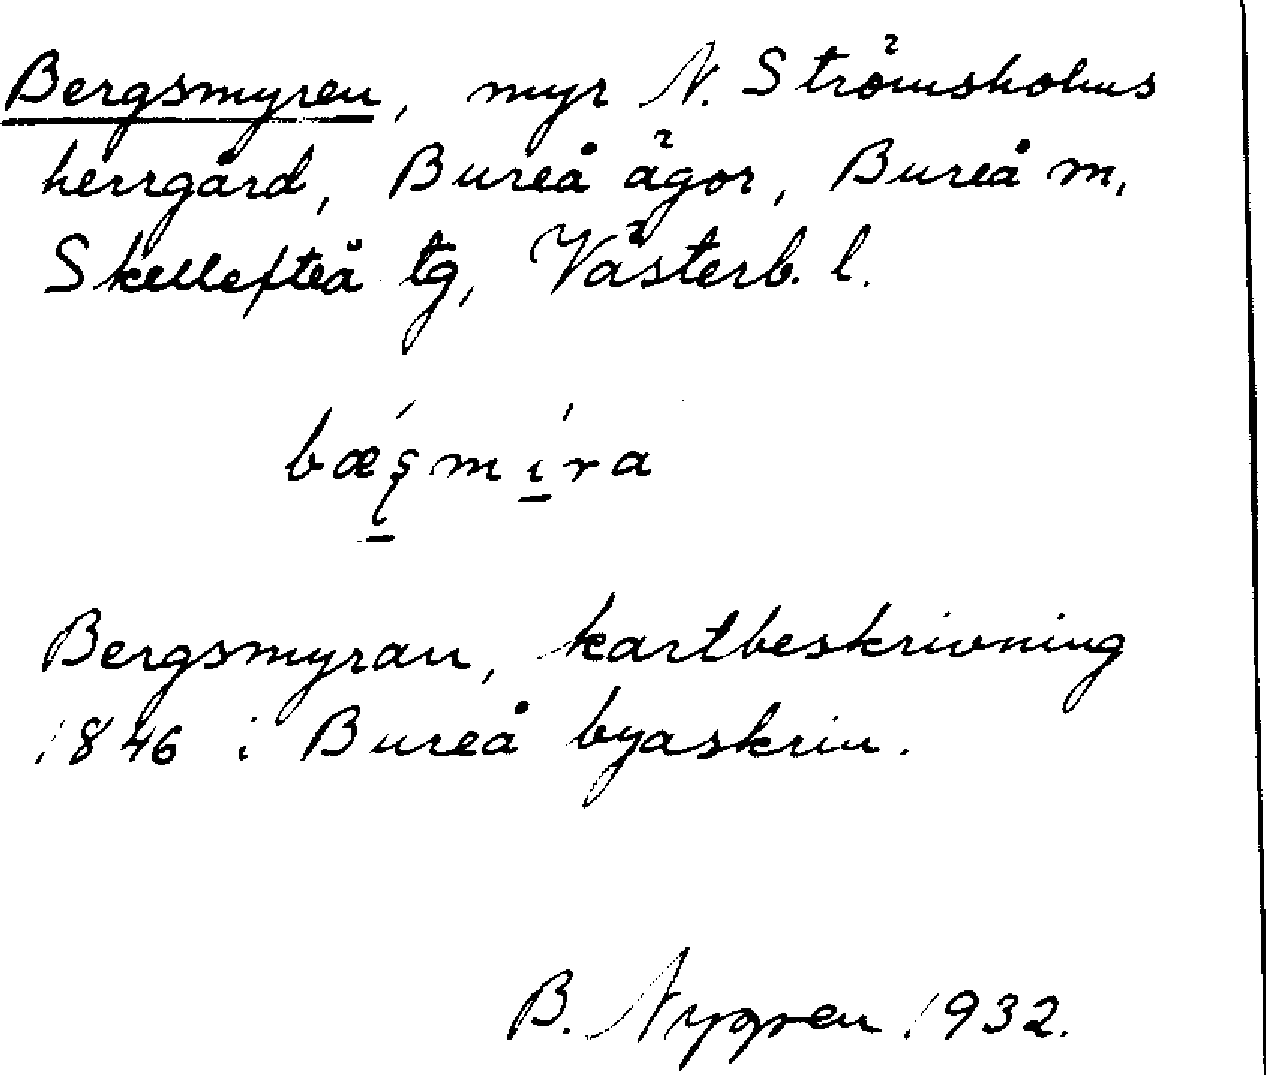 Bergsmyren, myr N. Strömsholms
herrgård, Bureå ägor, Bureå m,
Skellefteå tg, Västerb. l.
Bergsmyran, kartbeskrivning
1846 i Bureå byaskrin.
B. Nygren 1932.